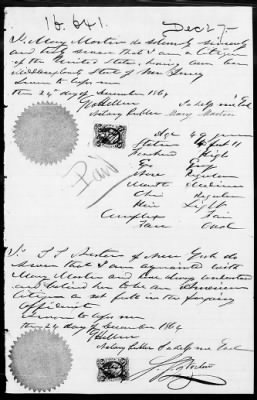 16.641. Dec 27
I, Mary Morton do solemnly sincerely
and truly swear that I am a Citizen
of the United States, having been born
State of New Jersey
Sworn to before me
this 24th day of December 1864
So help me God
Notary Public Mary Morton
Paid
Age 49 years
Stature 4 feet 11
Forehead High
Eyes Grey
Nose Regular
Mouth Medium
Chin Regular
Hair Light
Complexion Fair
Face Oval
I, of New York do
swear that I am acquainted with
Mary Morton and
and believe her to be an American
Citizen as set forth in the foregoing
affidavit
Sworn to before me
this 24 day of December 1864
Notary Public So help me God